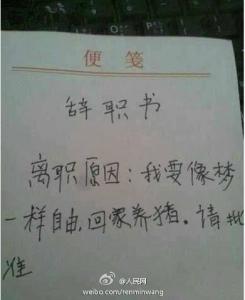 便笺
辞职书
离职原因：我要像梦
一样自由，回家养猪。请批
准
@人民网
weibo.com/renminwang